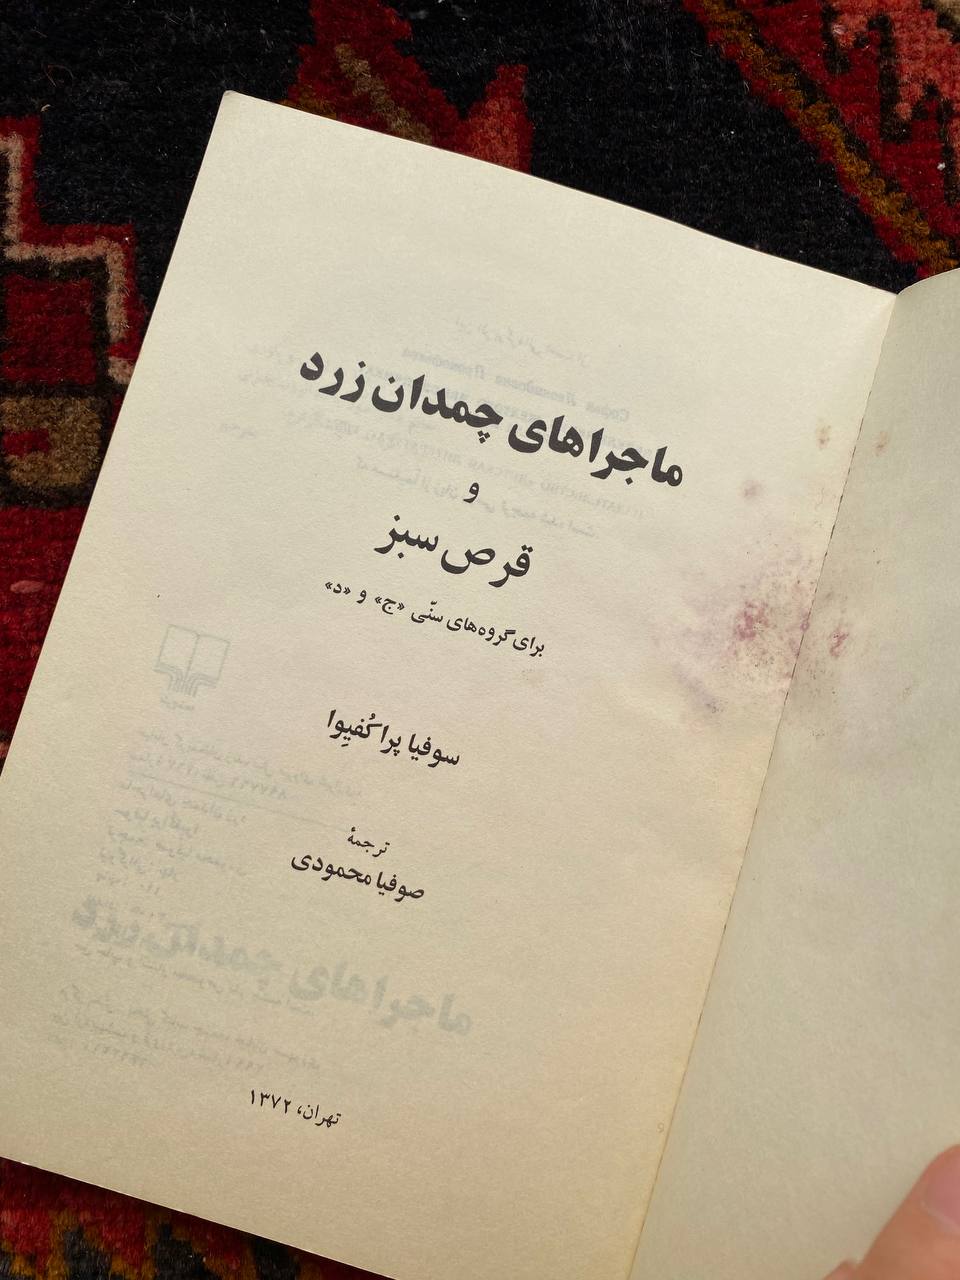 ماجراهای چمدان زرد
و
قرص سبز
برای گروه‌های سنّی «ج» و «د»
سوفیا پراکُفیِوا
ترجمهٔ
صوفیا محمودی
تهران، ۱۳۷۲